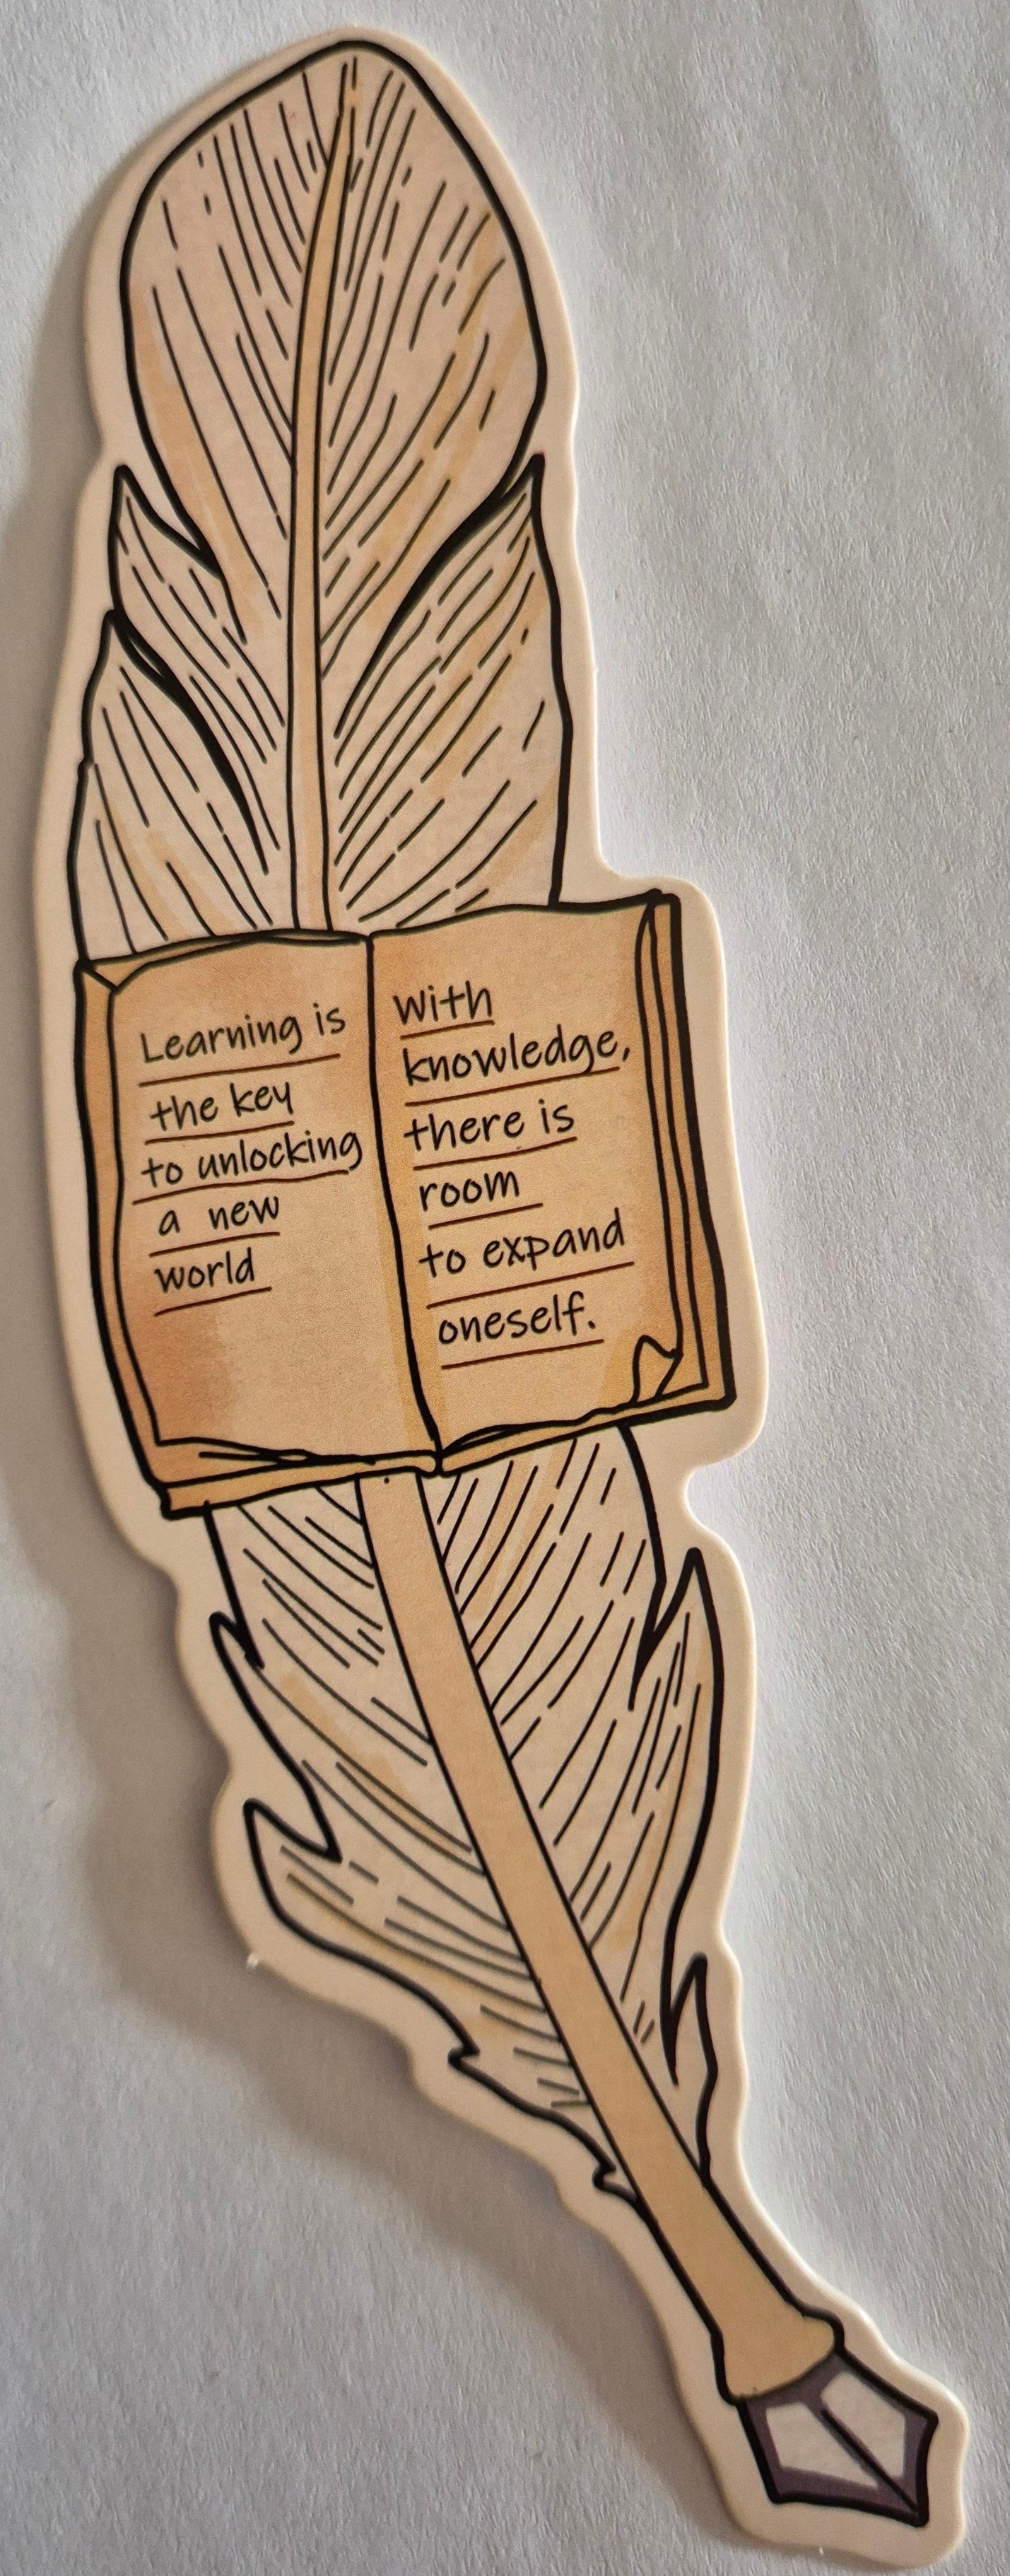 Learning is
the key
to unlocking
a new
world
with
knowledge,
there is
room
to expand
oneself.